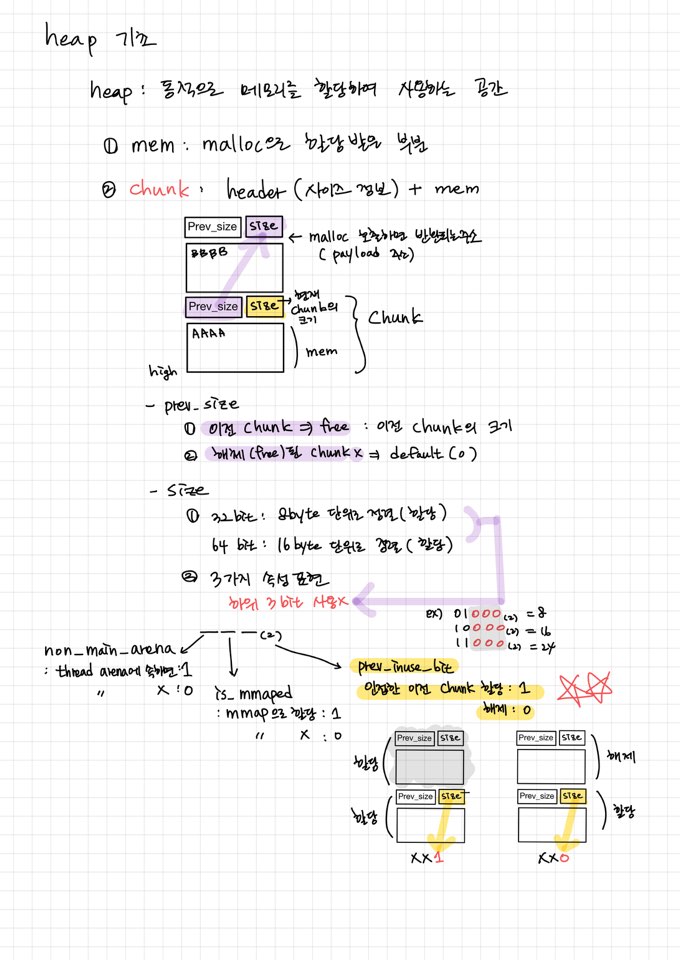 heap 기초
heap : 동적으로 메모리를 할당하여 사용하는 공간
① mem : malloc으로 할당 받은 부분
② chunk : header (사이즈 정보) + mem
Prev_size size
← malloc 호출하면 반환되는 주소
( payload 주소)
BBBB
Prev_size size → 현재 chunk의 크기
chunk
AAAA
mem
high
- prev_size
① 이전 chunk ⇒ free : 이전 chunk의 크기
② 해제(free)된 chunk x ⇒ default(0)
- size
① 32bit : 8byte 단위로 정렬 (할당)
64 bit : 16byte 단위로 정렬 ( 할당)
② 3가지 속성 표현
하위 3 bit 사용x
ex) 01 000 (2) = 8
10 000 (2) = 16
11 000 (2) = 24
_ _ _ (2)
non_main_arena
: thread arena에 속하면 : 1
〃 x : 0
is_mmaped
: mmap으로 할당 : 1
〃 x : 0
prev_inuse_bit
인접한 이전 chunk 할당 : 1
해제 : 0
할당 Prev_size size
할당 Prev_size size
xx1
Prev_size size 해제
Prev_size size 할당
xx0